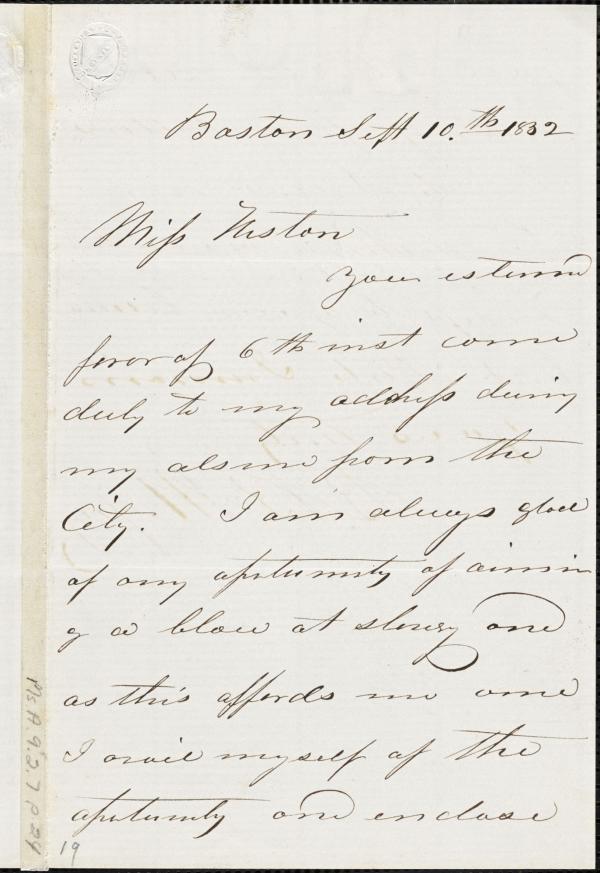 Boston Sept 10.th 1852
Miss Weston
Your esteemed
favor of 6th inst came
duly to my address during
my absence from the
City. I am always glad
of any oportunity of aimin
g a blow at slavery and
as this affords me one
I avail myself of the
oportunity and enclose
19
Ms.A.9.2.7 p 24